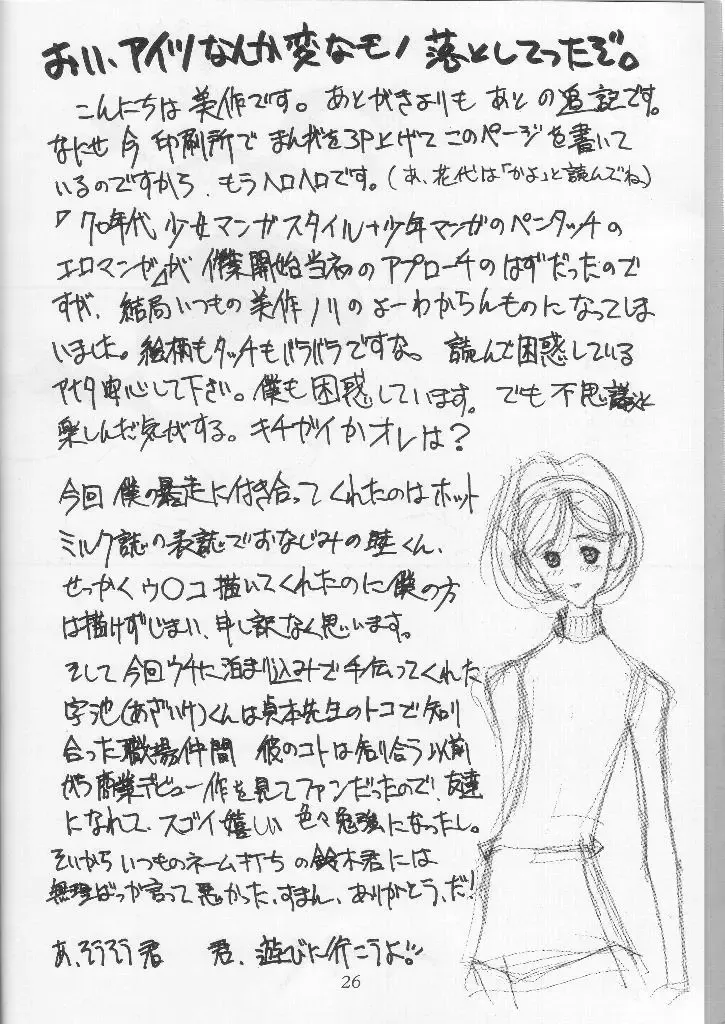 おいい、アイツなんか変なモノ落としてったぞ。
こんにちは美作です。あとがきよりもあとの追記です。
なにせ今印刷所でまんがを3P上げてこのページを書いて
いるのですから、もうヘロヘロです。(あ、花代は「かよ」と読んでね。)
『70年代少女マンガスタイル+少年マンガのペンタッチの
エロマンガ』が作業開始当初のアプローチのはずだったので
すが、結局いつもの美作ノリのよーわからんものになってしま
いました。絵柄もタッチもバラバラですな。読んで困惑している
アナタ安心して下さい。僕も困惑しています。でも不思議と
楽しんだ気がする。キチガイかオレは?
今回僕の暴走に付き合ってくれたのはホット
ミルク誌の表誌でおなじみの睦くん、
せっかくウ〇コ描いてくれたのに僕の方
は描けずじまい、申し訳なく思います。
そして今回ウチに泊まり込みで手伝ってくれた
字池(あざいけ)くんは貞本先生のトコで知り
合った職場仲間 彼のコトは知り合う以前
から商業デビュー作を見てファンだったので、友達
になれて、スゴイ嬉しい 色々勉強になったし。
それからいつものネーム打ちの鈴木君には
無理ばっか言って悪かった、すまん、ありがとう、だ!
あ、そうそう君 君、遊びに行こうよ!!
26